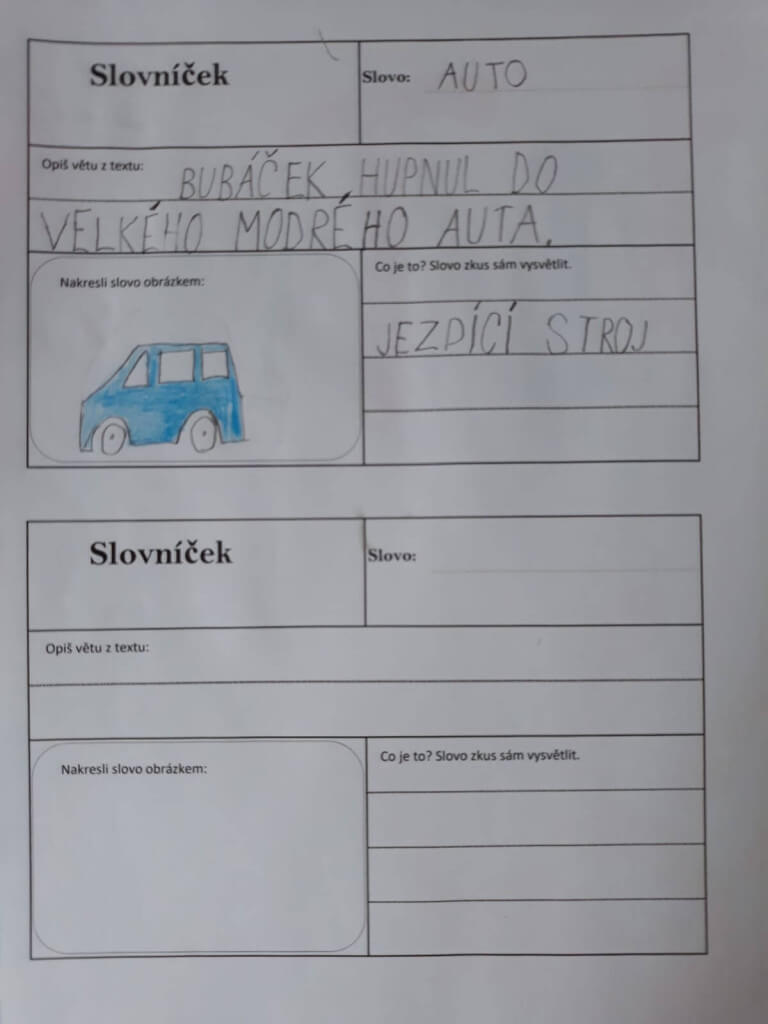 Slovníček
Slovo: AUTO
Opiš větu z textu: BUBÁČEK HUPNUL DO
VELKÉHO MODRÉHO AUTA.
Nakresli slovo obrázkem:
Co je to? Slovo zkus sám vysvětlit.
JEZDÍCÍ STROJ
Slovníček
Slovo:
Opiš větu z textu:
Nakresli slovo obrázkem:
Co je to? Slovo zkus sám vysvětlit.